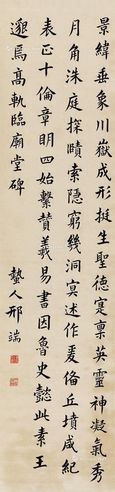 景緯垂象川嶽成形挺生聖德寔稟英靈神凝氣秀
月角洙庭探賾索隱窮幾洞冥述作爰俻丘墳咸紀
表正十倫章明四始繫賛羲易書因魯史懿此素王
邈焉高軌臨廟堂碑
蟄人邢端